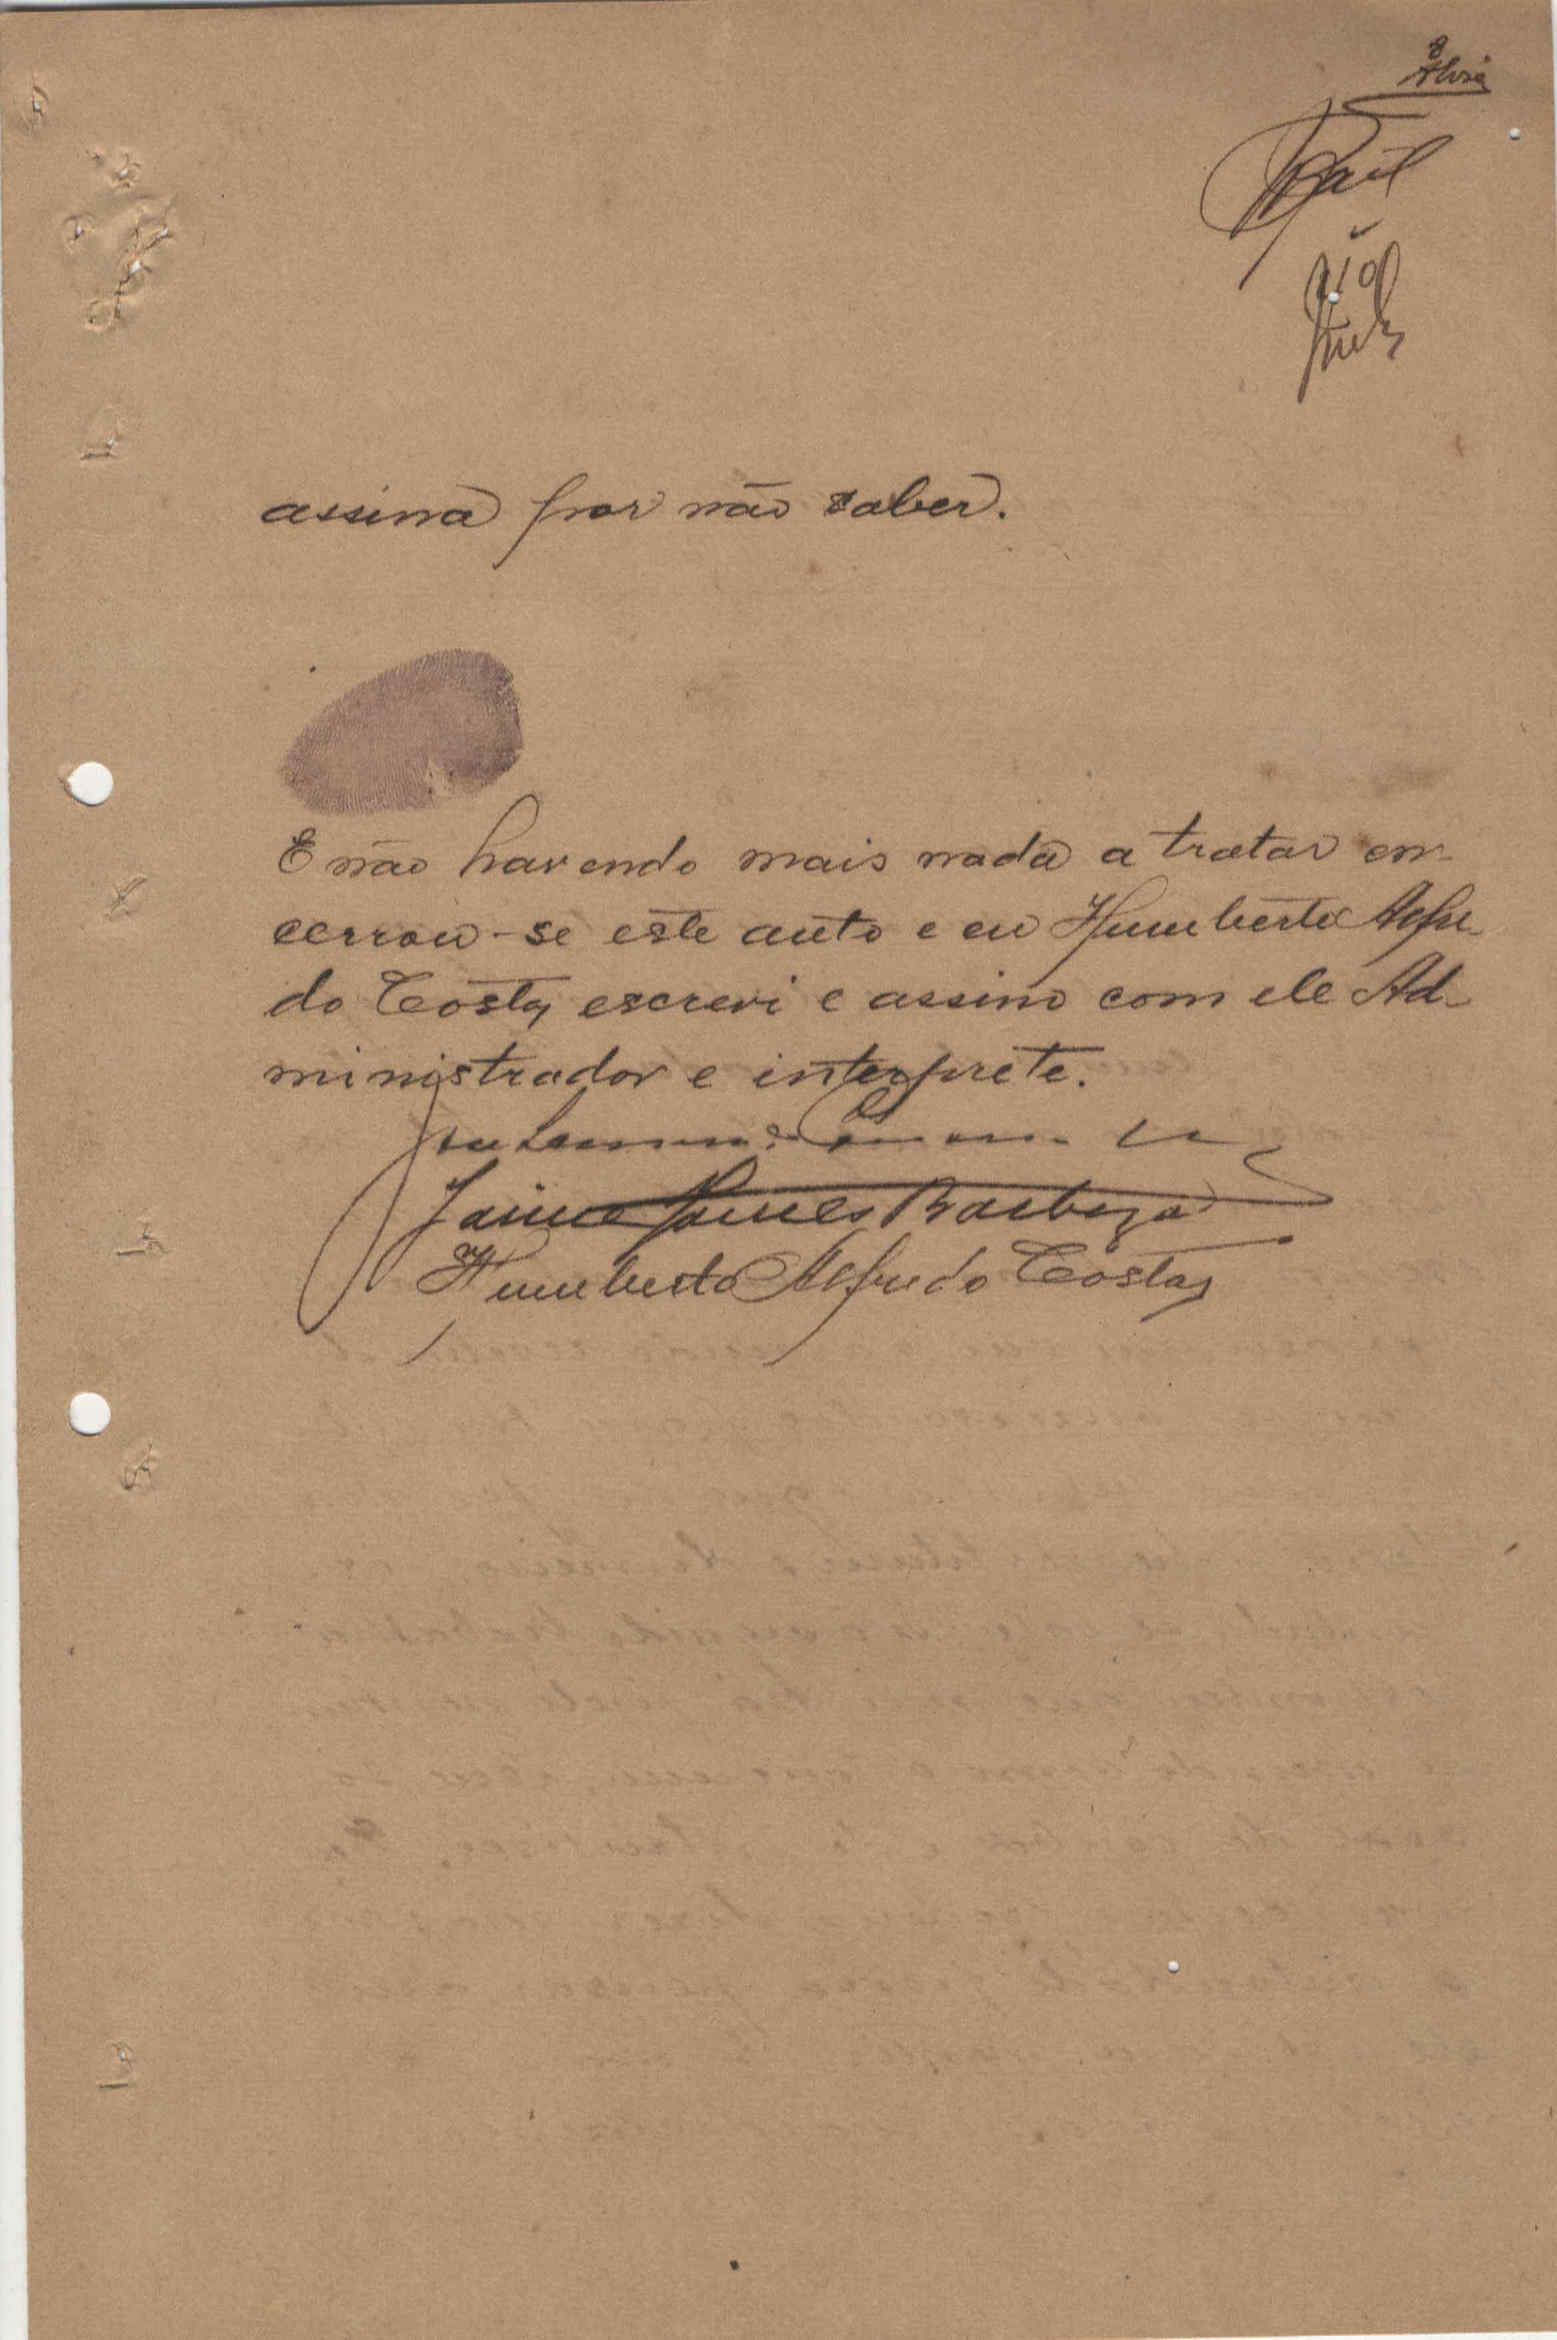 8
assina por não saber.
E não havendo mais nada a tratar en-
cerrou-se este auto e eu Humberto Alfre-
do Costa escrevi e assino com ele Ad-
ministrador e interprete.
Jaime Barboza
Humberto Alfredo Costa